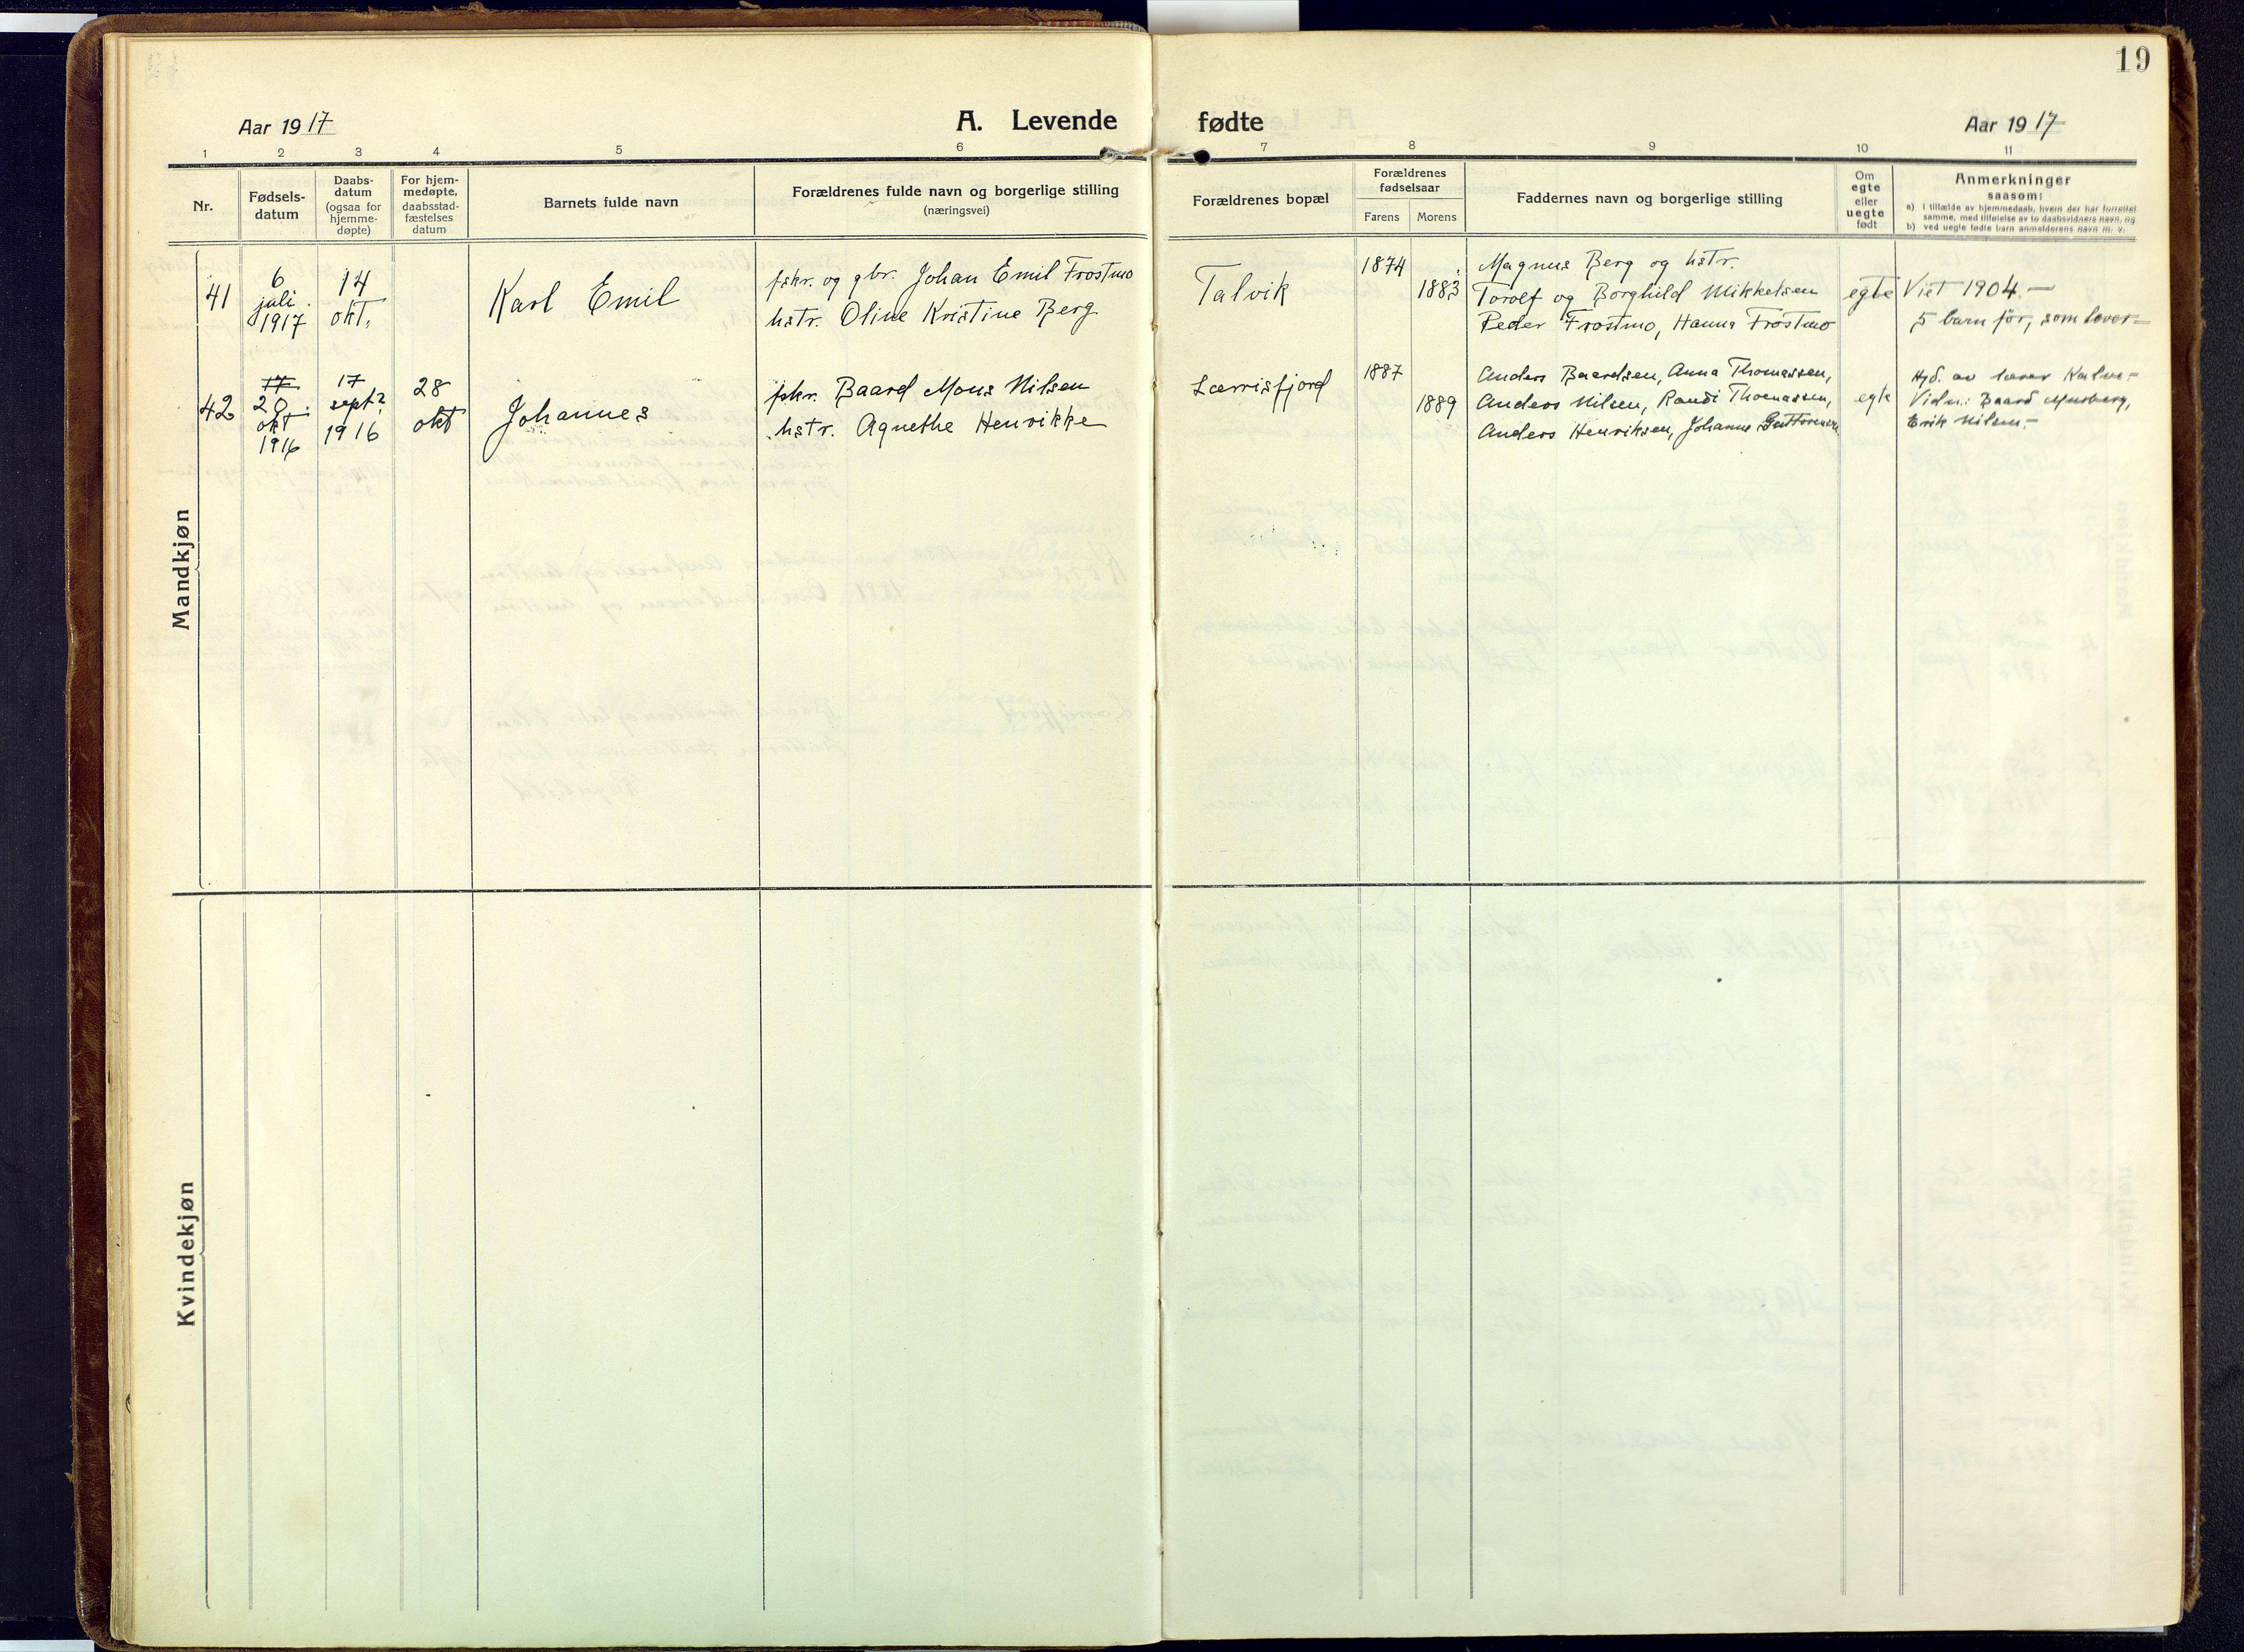 19
Aar 1917
A. Levende fødte
Aar 1917
1 2 3 4 5 6 7 8 9 10 11
Nr.
Fødsels-
datum
Daabs-
datum
(ogsaa for
hjemme-
døpte)
For hjem-
medøpte,
daabsstad-
fæstelses
datum
Barnets fulde navn
Forældrenes fulde navn og borgerlige stilling
(næringsvei)
Forældrenes bopæl
Forældrenes
fødselsaar
Farens Morens
Faddernes navn og borgerlige stilling
Om
egte
eller
uegte
født
Anmerkninger
saasom:
a) i tilfælde av hjemmedaab, hvem der har forrettet
samme, med tilføielse av to daabsvidners navn, og
b) ved uegte fødte barn anmelderens navn m. v.
Mandkjøn
41
6
juli
1917
14
okt.
Karl Emil
fskr. og gbr. Johan Emil Frostmo
hstr. Oline Kristine Berg
Talvik
1874
1883
Magnus Berg og hstr.
Torolf og Borghild Mikkelsen
Peder Frostmo, Hanna Frostmo
egte
Viet 1904.—
5 barn før, som lever=
42
17
20
okt
1916
17
sept?
1916
28
okt
Johannes
fskr. Baard Mons Nilsen
hstr. Agnethe Henrikke
Lærrisfjord
1887
1889
Anders Baardsen, Anna Thomassen,
Anders Nilsen, Randi Thomassen,
Anders Henriksen, Johanne Guttormsen
egte
Hjd. av lærer
Vidn.: Baard
Erik Nilsen.-
Kvindekjøn